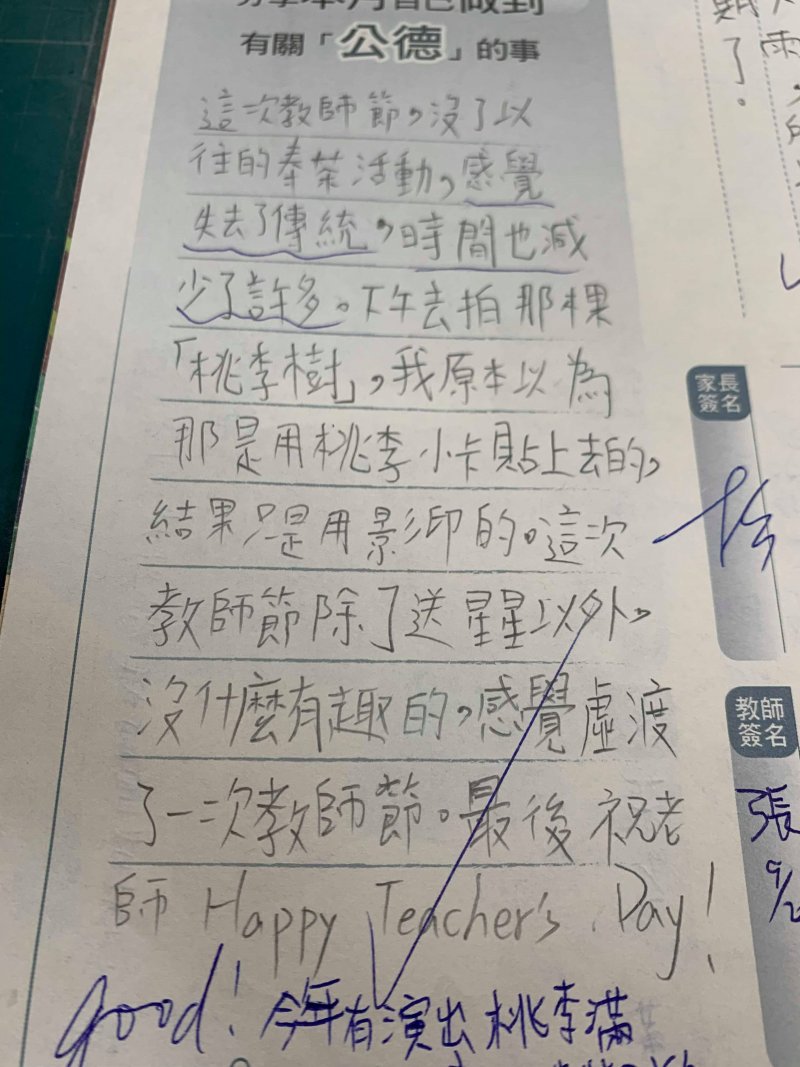 有關「公德」的事
這次教師節,沒了以
往的奉茶活動,感覺
失去了傳統,時間也減
少了許多。下午去拍那棵
「桃李樹」,我原本以為
那是用桃李小卡貼上去的,
結果只是用影印的。這次
教師節除了送星星以外,
沒什麼有趣的,感覺虛渡
了一次教師節。最後祝老
師 Happy Teacher's Day!
good! 今年有演出桃李滿
了。
家長
簽名
教師
簽名
張
9/2